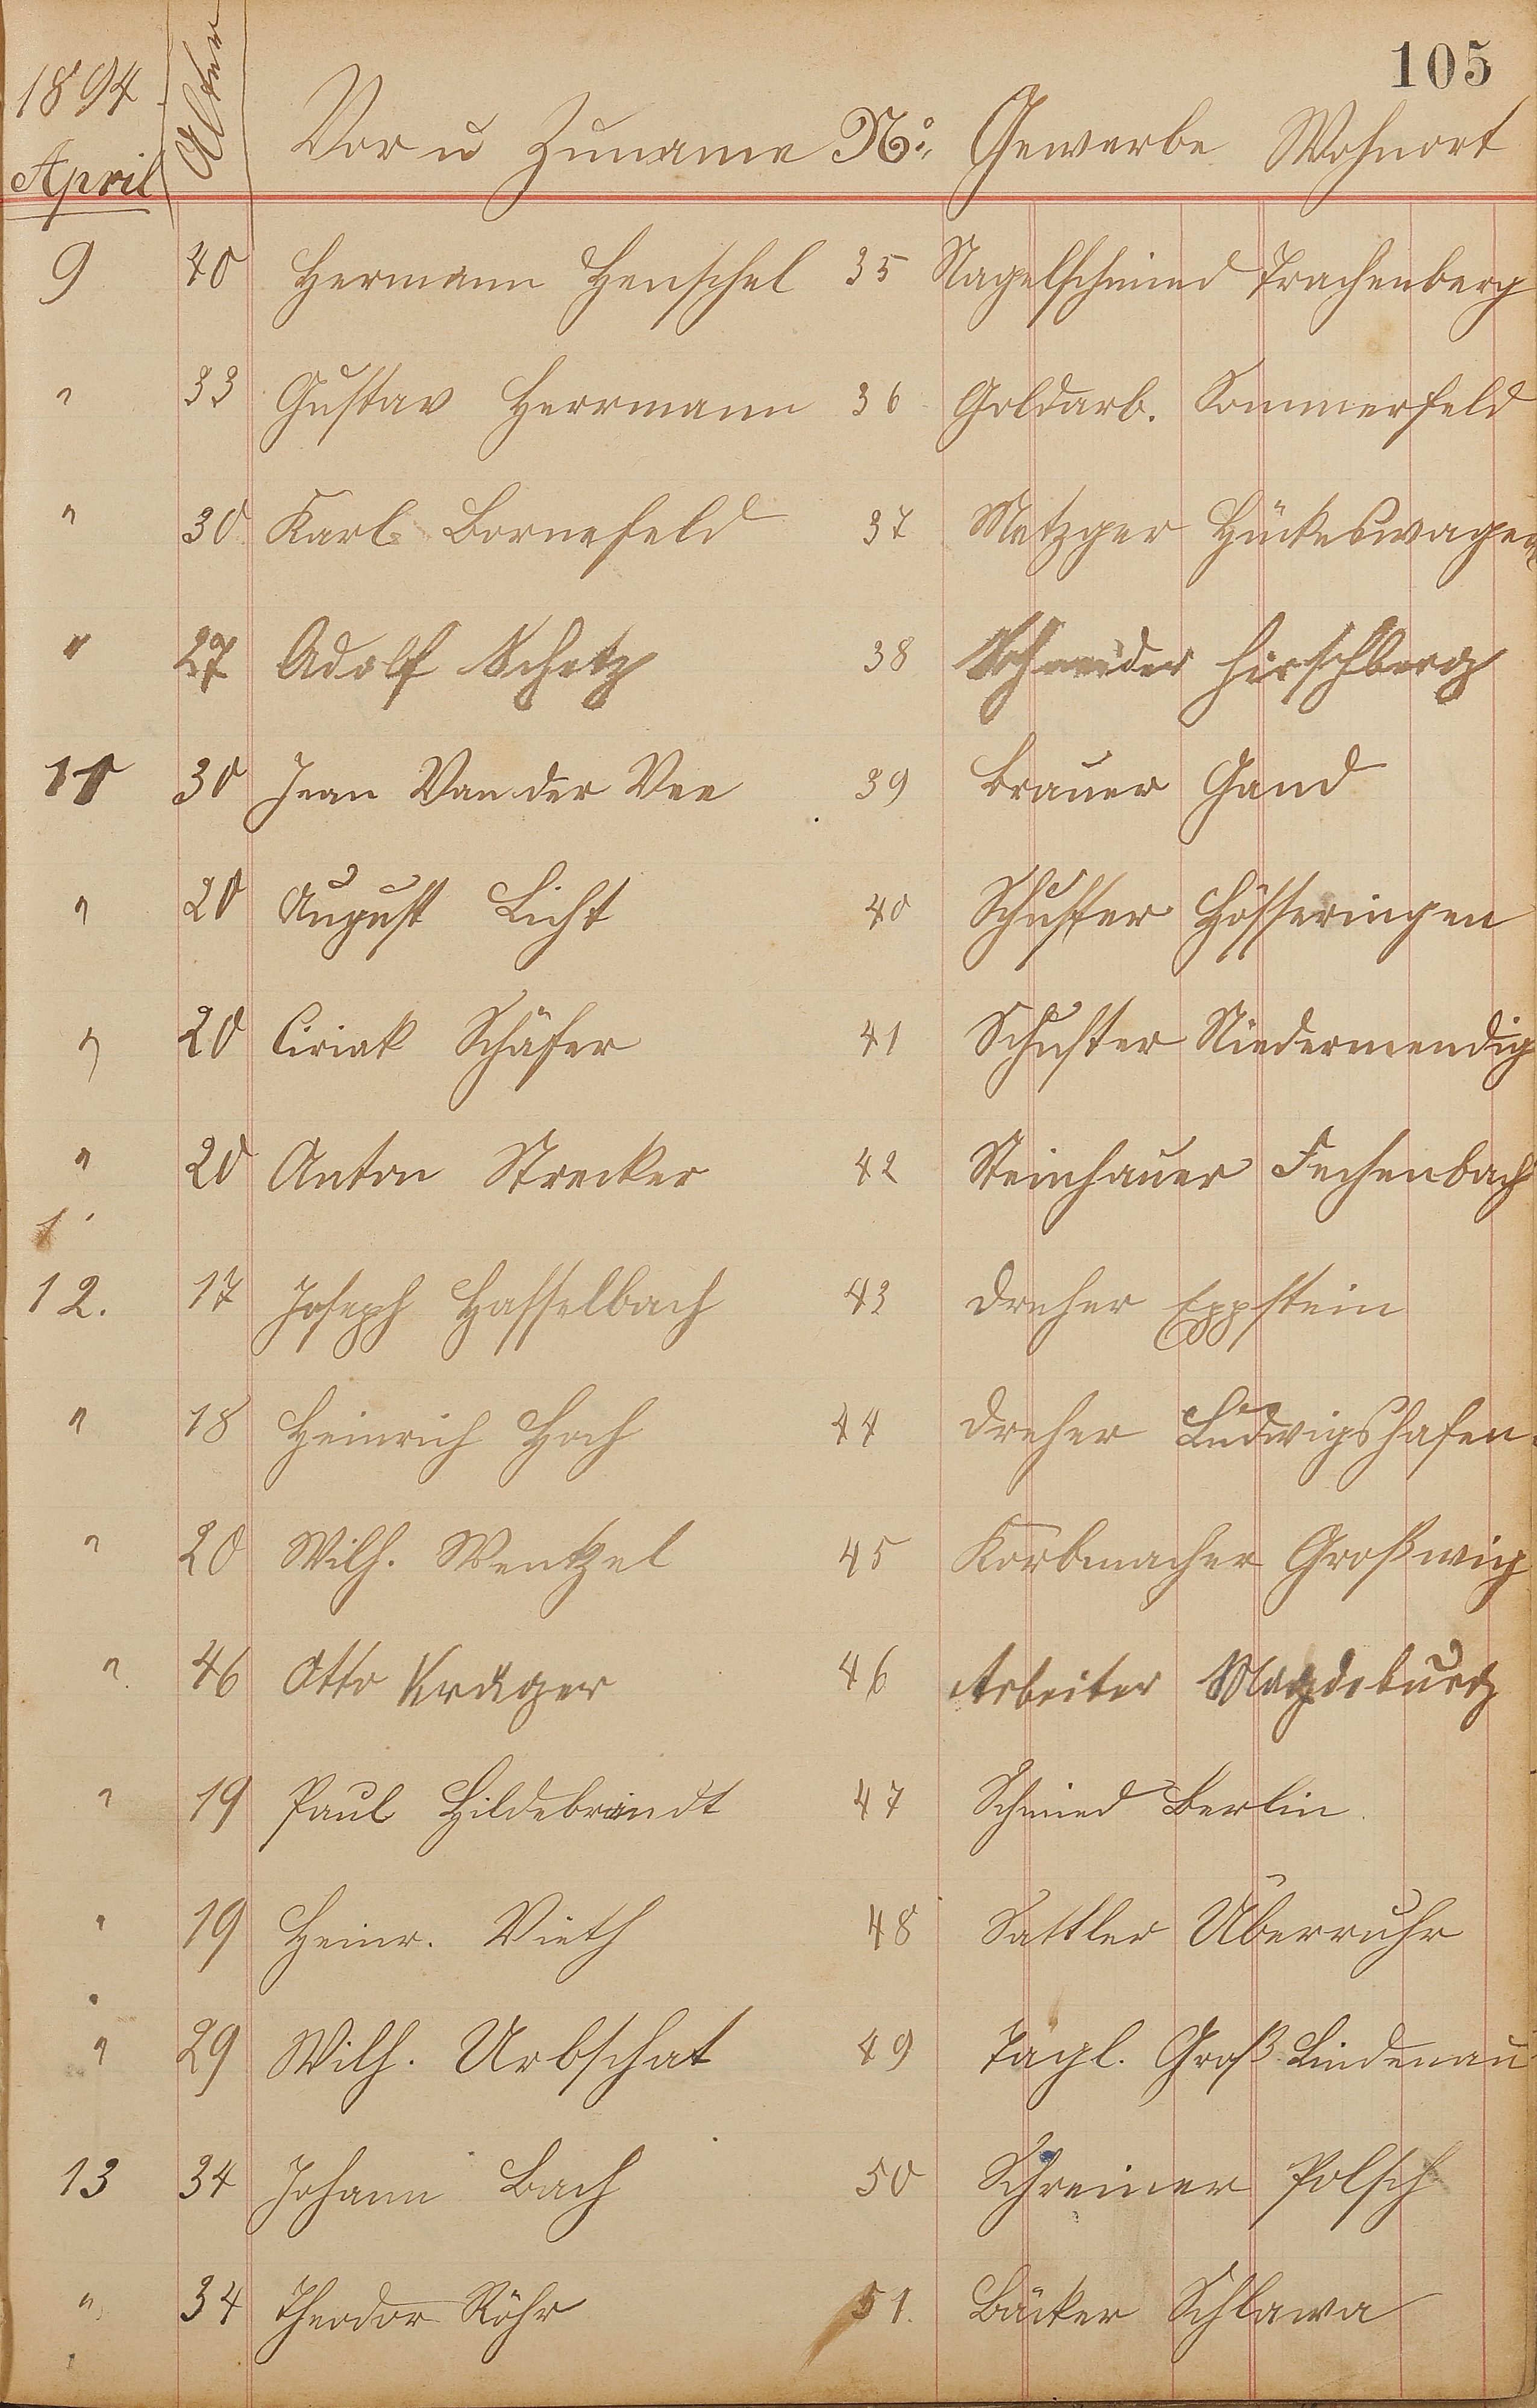 105
1894 Alter
April Vor u Zuname No. Gewerbe Wohnort
9 40 Hermann Henschel 35 Nagelschmied Trachenberg
" 33 Gustav Herrmann 36 Goldarb. Sommerfeld
" 30 Karl Bornefeld 37 Metzger Hückeswagen
" 27 Adolf Schetz 38 Schneider Hirschberg
11 30 Jean Van der Vee 39 Brauer Gand
" 20 August Licht 40 Schuster Hösseringen
" 20 Ciriak Schäfer 41 Schuster Niedermendig
" 20 Anton Strecker 42 Steinhauer Fechenbach
12. 17 Joseph Hasselbach 43 Dreher Eppstein
" 18 Heinrich Hoch 44 Dreher Ludwigshafen.
" 20 Wilh. Wentzel 45 Korbmacher Großwig
" 46 Otto Krüger 46 Arbeiter Magdeburg
" 19 Paul Hildebrandt 47 Schmied Berlin.
" 19 Heinr. Vieth 48 Sattler Überruhr
" 29 Wilh. Urbschat 49 Tagl. Groß Lindenau
13 34 Johann Bach 50 Schreiner Polsch
" 34 Theodor Röhr 51. Bäcker Schlawa